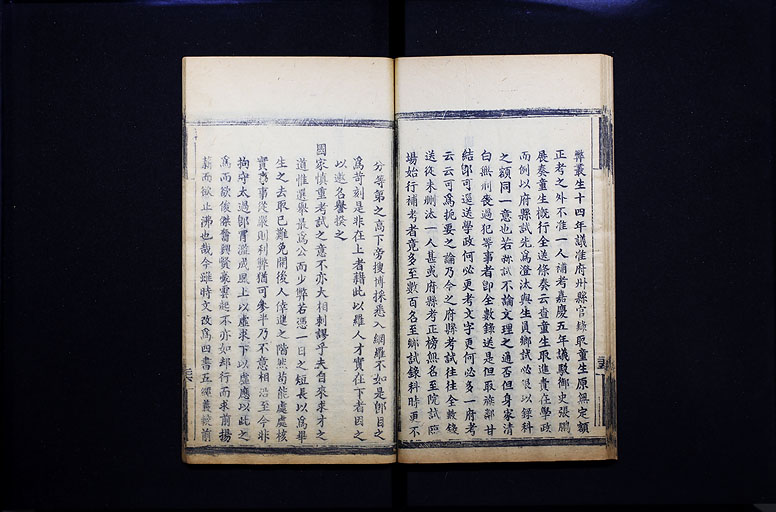 弊叢生十四年議准府州縣官錄取童生原無定額
正考之外不准一人補考嘉慶五年議駁御史張鵬
展奏童生概行全送條奏云查童生取進責在學政
而例以府縣試先為澄汰與生員鄉試必限以錄科
之額同一意也若弥試不論文理之通否但身家清
白無刑喪過犯等事者即全數錄送是但取族鄰甘
結即可逕送學政何必更考文字更何必多一府考
云云可為扼要之論乃今之府縣考試往往全數錄
送從未删汰一人甚或府縣考正榜無名至院試臨
場始行補考者竟多至數百名至鄉試錄科時更不
分等第之高下旁搜博採悉入網羅不如是即目之
為苛刻是非在上者藉此以羅人才實在下者因之
以邀名譽揆之
國家慎重考試之意不亦大相刺謬乎夫自來求才之
道惟選舉最為公而少弊若憑一日之短長以為畢
生之去取已難免開後人倖進之階然苟能處處核
實事事從嚴則利弊猶可參半乃不意相沿至今非
拘守太過即冒濫成風上以虛求下以虛應以此之
為而欲俊傑奮興賢豪雲起不亦如却行而求前揚
薪而欲止沸也哉今雖時文改為四書五經義較前